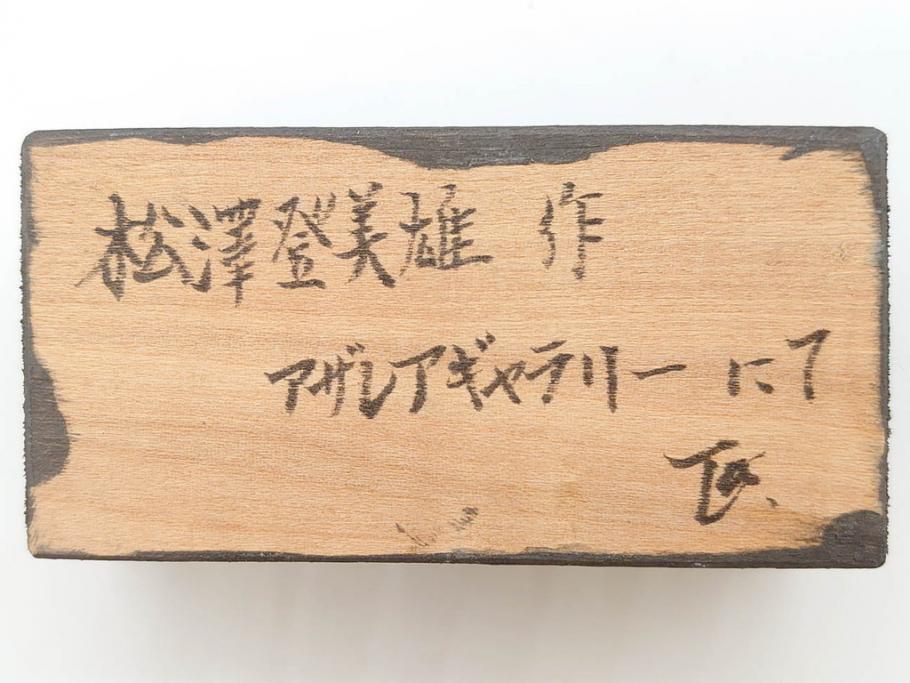 松澤登美雄 作
アザレアギャラリーにて